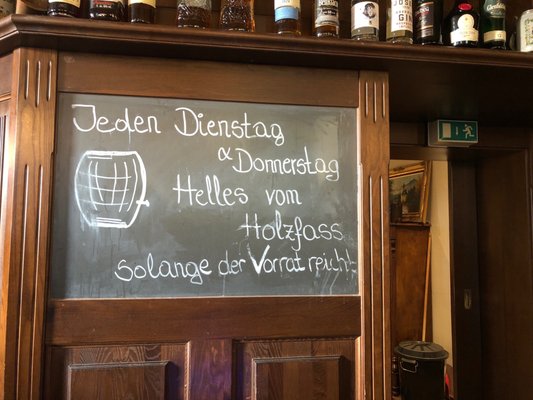 Jeden Dienstag
& Donnerstag
Helles vom
Holzfass
solange der Vorrat reicht!